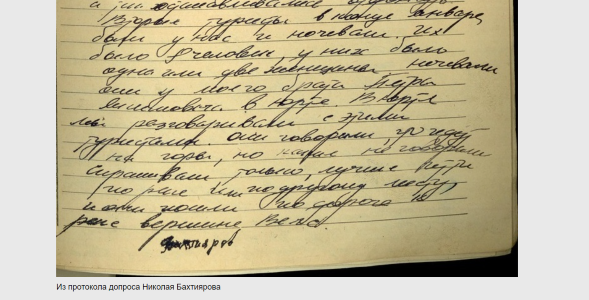 Вторые туристы в конце января
были у нас и ночевали их
было человек у них было
одна или две женщины ночевали
они у моего брата Петра
Якимовича в юрте. В юрте
мы разговаривали с этими
туристами. они говорили, что идут
на горы, но какие не говорили
спрашивали только, лучше идти
по реке или по другому месту
и они пошли по дороге
реке вершине
Из протокола допроса Николая Бахтиярова